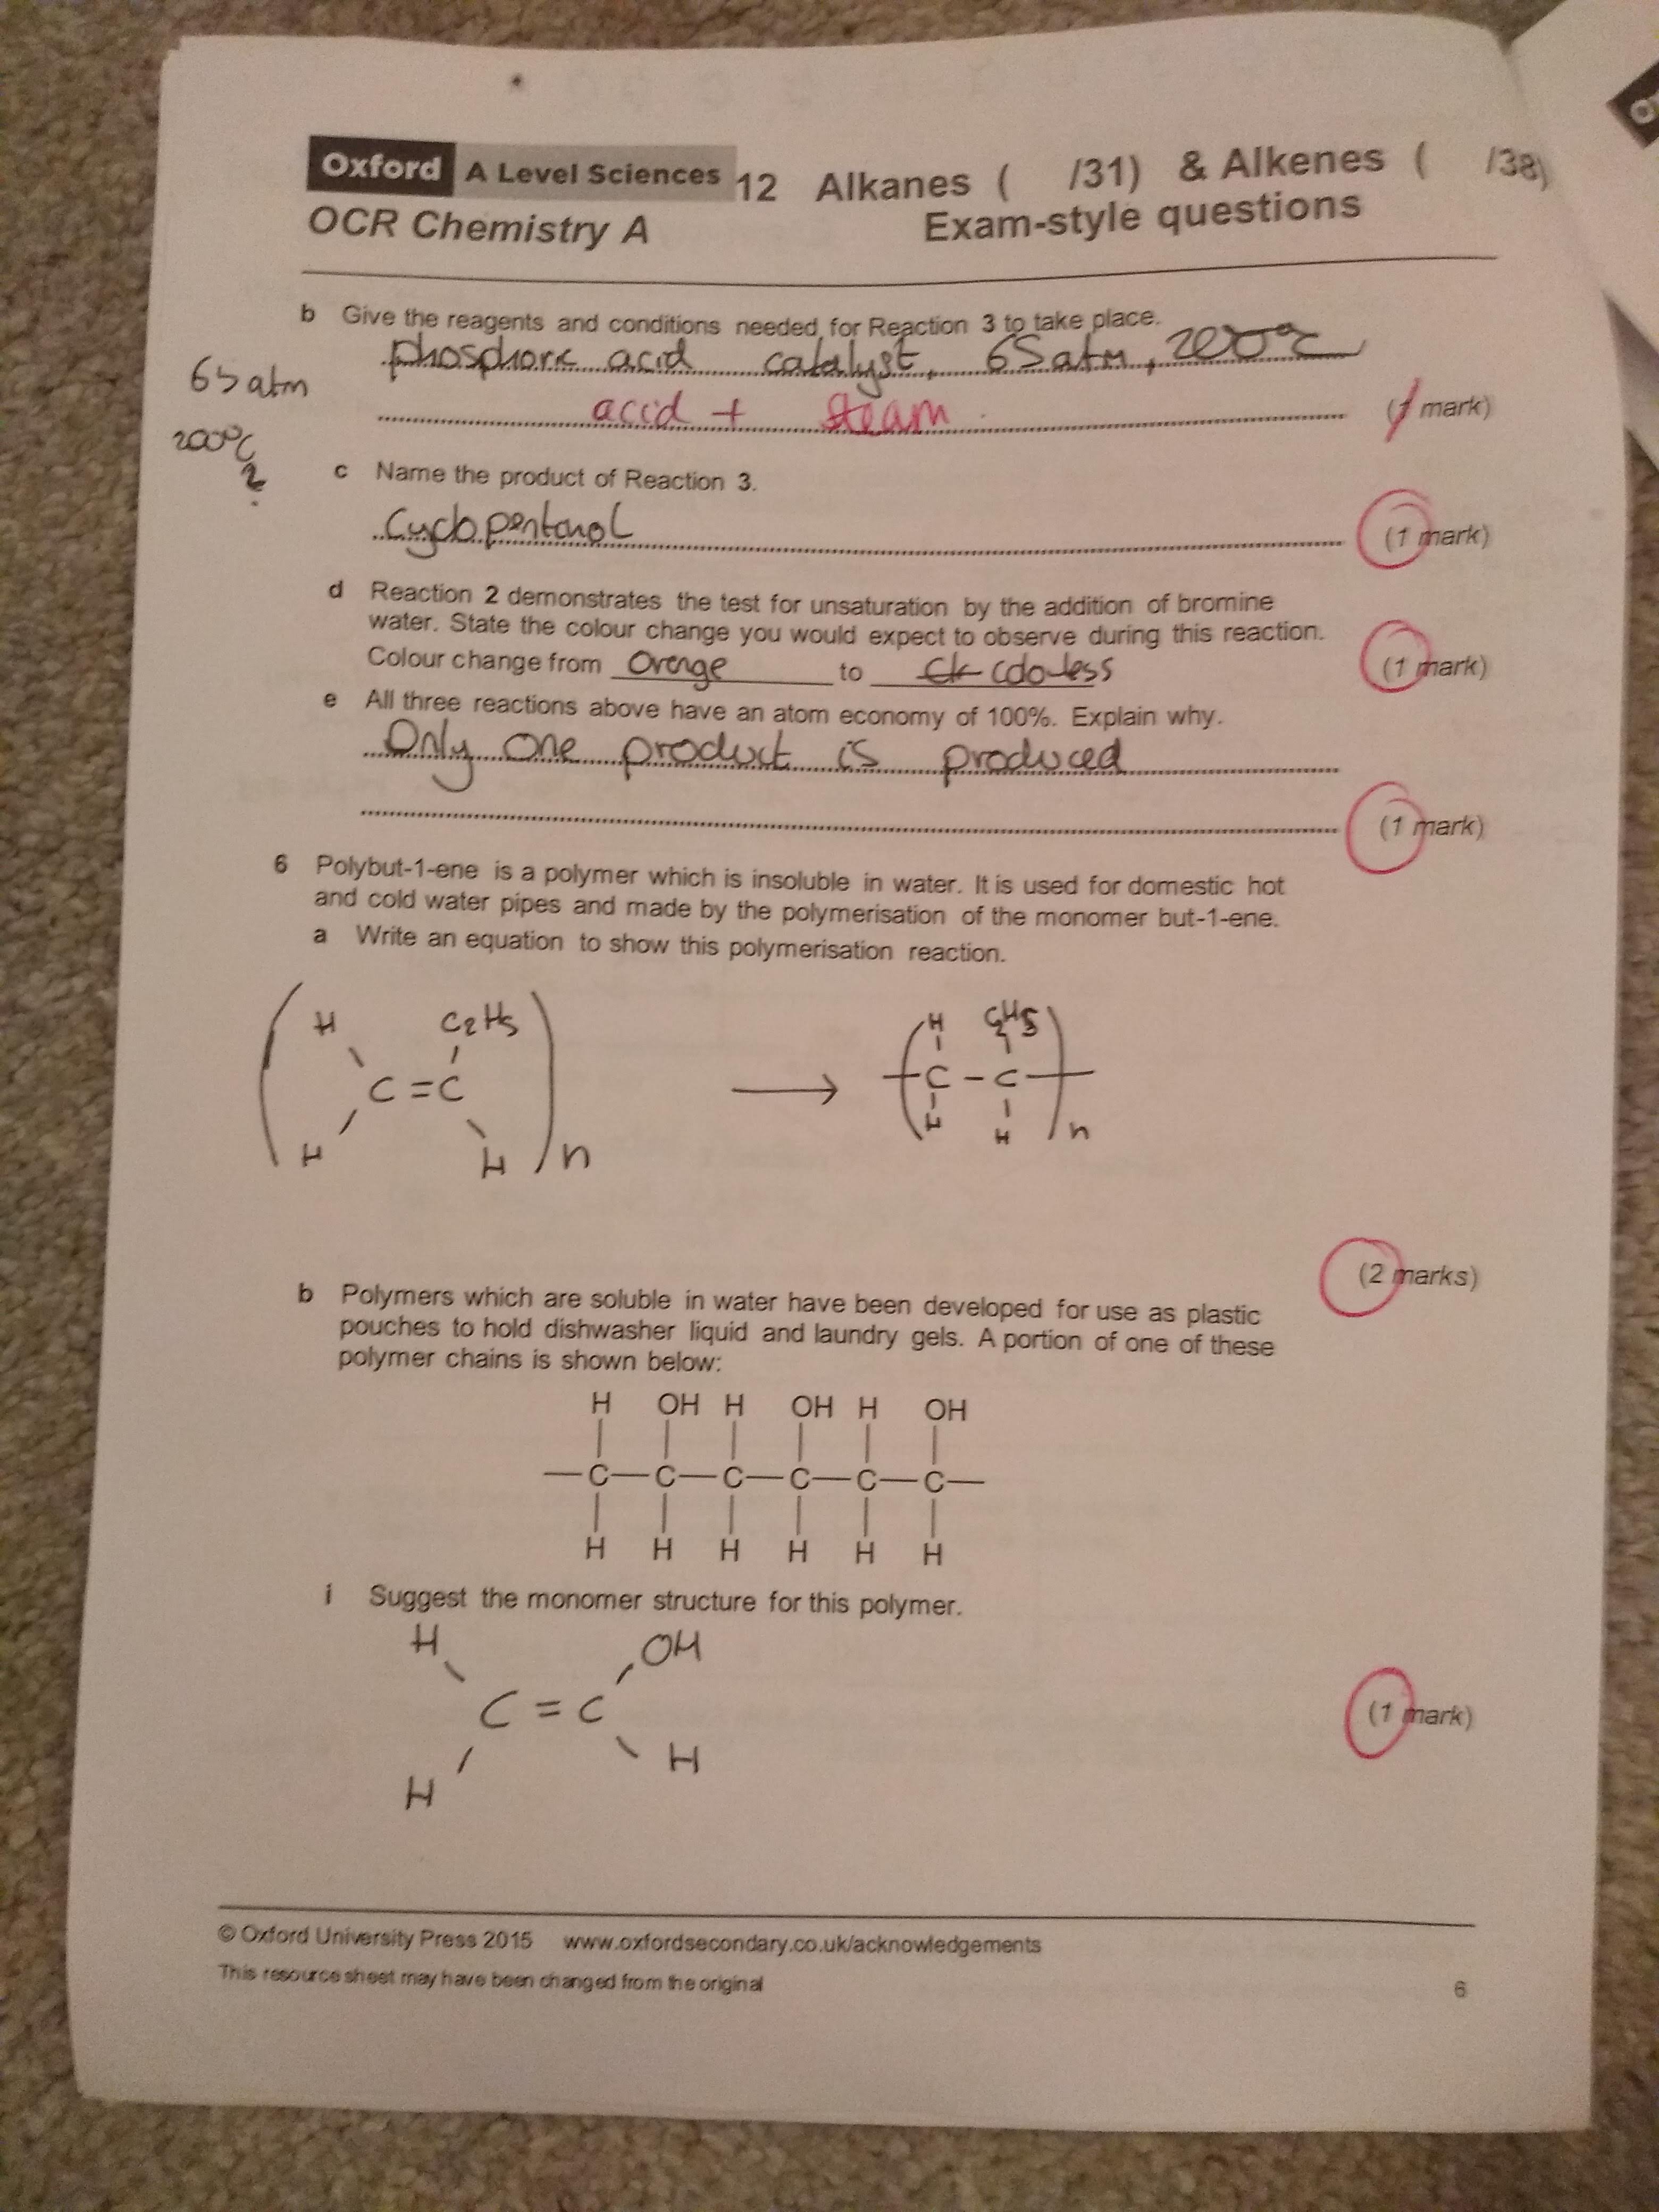 Oxford A Level Sciences 12 Alkanes ( /31) & Alkenes ( /38)
OCR Chemistry A Exam-style questions
b Give the reagents and conditions needed for Reaction 3 to take place.
phosphoric acid catalyst, 65atm, 200°C
65 atm
acid + steam (1 mark)
200°C
?
c Name the product of Reaction 3.
Cyclopentanol (1 mark)
d Reaction 2 demonstrates the test for unsaturation by the addition of bromine
water. State the colour change you would expect to observe during this reaction.
Colour change from Orange to colourless (1 mark)
e All three reactions above have an atom economy of 100%. Explain why.
Only one product is produced
(1 mark)
6 Polybut-1-ene is a polymer which is insoluble in water. It is used for domestic hot
and cold water pipes and made by the polymerisation of the monomer but-1-ene.
a Write an equation to show this polymerisation reaction.
H C2H5 H C2H5
C = C → C - C
H H n H H n
(2 marks)
b Polymers which are soluble in water have been developed for use as plastic
pouches to hold dishwasher liquid and laundry gels. A portion of one of these
polymer chains is shown below:
H OH H OH H OH
—C—C—C—C—C—C—
H H H H H H
i Suggest the monomer structure for this polymer.
H OH
C = C (1 mark)
H H
© Oxford University Press 2015 www.oxfordsecondary.co.uk/acknowledgements
This resource sheet may have been changed from the original
6